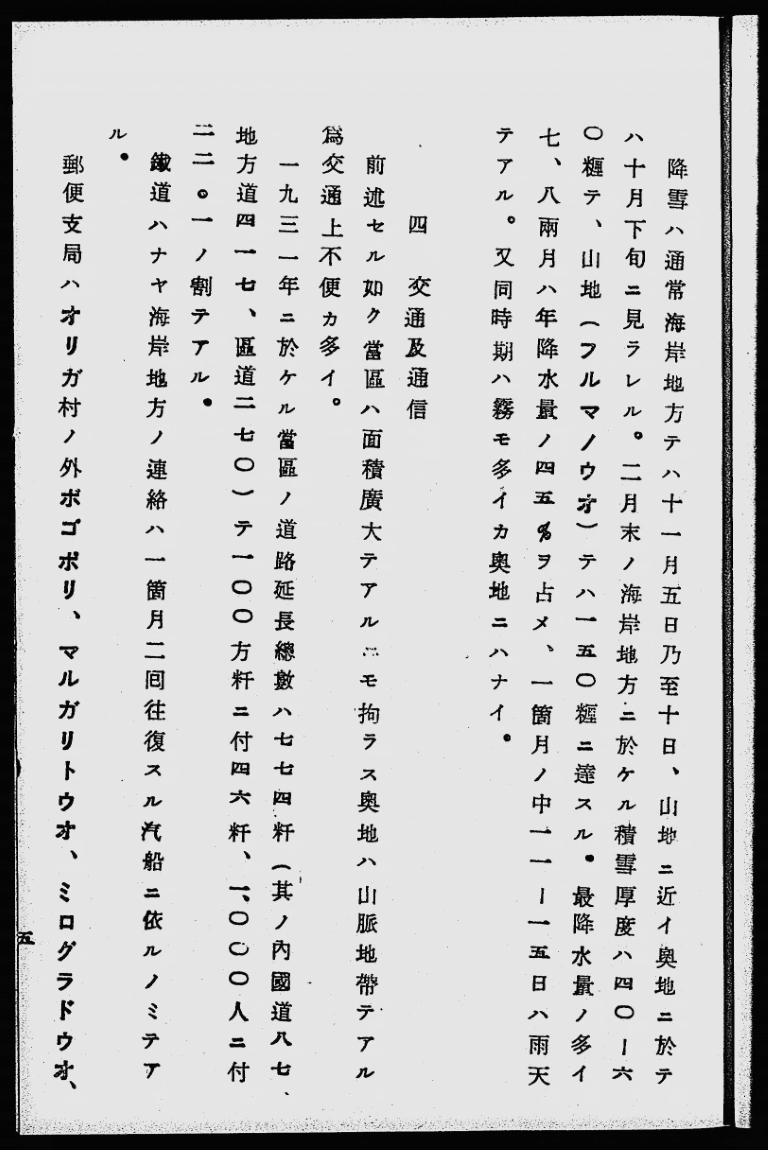 降雪ハ通常海岸地方テハ十一月五日乃至十日、山地ニ近イ奧地ニ於テ
ハ十月下旬ニ見ラレル。二月末ノ海岸地方ニ於ケル積雪厚度ハ四〇ー六
〇糎テ、山地(フルマノウオ)テハ一五〇糎ニ達スル。最降水量ノ多イ
七、八兩月ハ年降水量ノ四五%ヲ占メ、一箇月ノ中一一ー一五日ハ雨天
テアル。又同時期ハ霧モ多イカ奧地ニハナイ。
四 交通及通信
前述セル如ク當區ハ面積廣大テアルニモ拘ラス奧地ハ山脈地帶テアル
爲交通上不便カ多イ。
一九三一年ニ於ケル當區ノ道路延長總數ハ七七四粁(其ノ內國道八七、
地方道四一七、區道二七〇)テ一〇〇方粁ニ付四六粁、一、〇〇〇人ニ付
二二。一ノ割テアル。
鐵道ハナヤ海岸地方ノ連絡ハ一箇月二囘往復スル汽船ニ依ルノミテア
ル。
郵便支局ハオリガ村ノ外ボゴポリ、マルガリトウオ、ミログラドウオ、
五